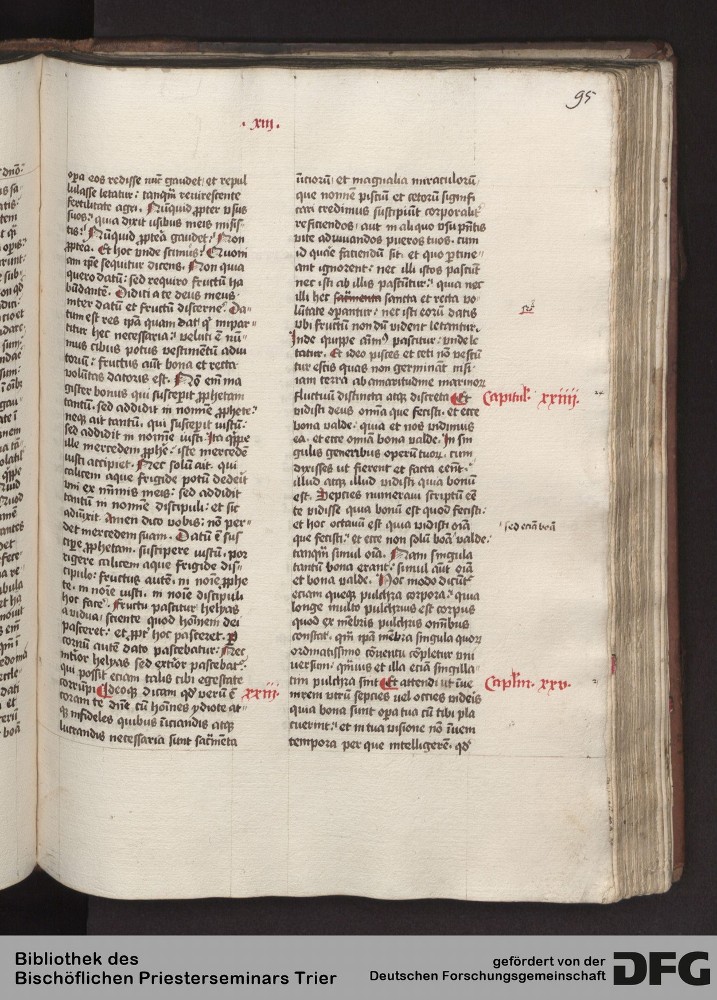 95
· xiij ·
opa eos redisse nūc gaudet· et repul
lulasse letatur· tanqm reuirescente
fertilitate agri. Nūquid ꝓpter vsus
suos? quia dixit vsibus meis misis
tis? Nūquid ꝓptea gaudet? Non
ꝓptea. Et hoc vnde scimus? Quoni
am ip̄e sequitur dicens. Non quia
quero datū· sed requiro fructū ha
būdantē. Didici a te deus meus
inter datū et fructū discerne· Da
tum est res ip̄a quam dat q̇ impar
titur hec necessaria· veluti ē nū
mus cibus potus vestimētū adiu
toriū· fructus aūt bona et recta
volūtas datoris est. Nō em̄ ma
gister bonus qui susceperit ꝓphetam
tantū· sed addidit in nomīe ꝓphete·
neqꝫ ait tantū· qui susceperit iustū·
sed addidit in nomīe iusti· Ita q̄ppe
ille mercedem ꝓphe· iste mercedē
iusti accipiet. Nec solū ait· qui
calicem aque frigide potū dederit
vni ex minimis meis· sed addidit
tantū in nomīe discipuli· et sic
adiūxit. Amen dico vobis· nō per
det mercedem suam. Datū ē sus
cipe ꝓphetam· suscipere iustū· por
rigere calicem aque frigide dis
cipulo· fructus autē· in noīe ꝓphe
te· in noīe iusti· in noīe discipuli
hoc facē. Fructu pascitur helyas
a vidua· sciente quod hoīnem dei
pasceret· et ꝓpt̄ hoc pasceret· ꝑ
coruū autē dato pascebatur· Nec
intior helyas sed extior pascebat·
qui possit eciam talis cibi egestate
corrūpi Ideoqꝫ dicam qd̄ verū ē xxiii·
coram te dn̄e cū hoīnes ydiote at
qꝫ infideles quibus iniciandis atqꝫ
lucrandis necessaria sunt sacm̄eta
iciorū· et magnalia miraculorū
que nomīe pisciū et cetorū signifi
cari credimus suscipiūt corporalit̄
reficiendos· aut in aliquo vsu pn̄tis
vite adiuuandos pueros tuos· cum
id quare faciendū sit· et quo ꝑtine
ant ignorent· nec illi istos pascūt
nec isti ab illis pascūtur· quia nec
illi hec sacramenta sancta et recta vo
lūtate operantur· nec isti eorū datis
vbi fructū nondū vident letantur.
Inde quippe aīm⁹ pascitur· vnde le
tatur. Et ideo pisces et ceti nō vescū
tur escis quas non germinat nisi
iam terra ab amaritudine marinor
fluctuū distincta atqꝫ discreta Et Capitul· xxiiij·
vidisti deus omīa que fecisti· et ecce
bona valde· quia et nos vidimus
ea· et ecce omīa bona valde. In sin
gulis generibus operū tuor· cum
dixisses ut fierent et facta eēnt·
illud atqꝫ illud vidisti quia bonū
est. Septies numeraui scriptū eē
te vidisse quia bonū est quod fecisti·
et hoc octauū est quia vidisti oīa
que fecisti· et ecce non solū boā valde· sed eciā boā
tanqm̄ simul oīa. Nam singula
tantū bona erant· simul aūt oīa
et bona valde. Hoc modo dicūt
eciam queqꝫ pulchra corpora· quia
longe multo pulchrius est corpus
quod ex mēbris pulchris omībus
constat· qm̄ ip̄a mēbra singula quor
ordinatissimo cōuentu completur vni
uersum· qmuis et illa eciā singilla
tim pulchra sint Et attendi ut iue Caplm· xxv·
nirem vtrū septies uel octies videris
quia bona sunt opera tua cū tibi pla
cuerint· et in tua visione nō iuem
tempora per que intelligerē· qd̄
Bibliothek des
Bischöflichen Priesterseminars Trier
gefördert von der
Deutschen Forschungsgemeinschaft
DFG